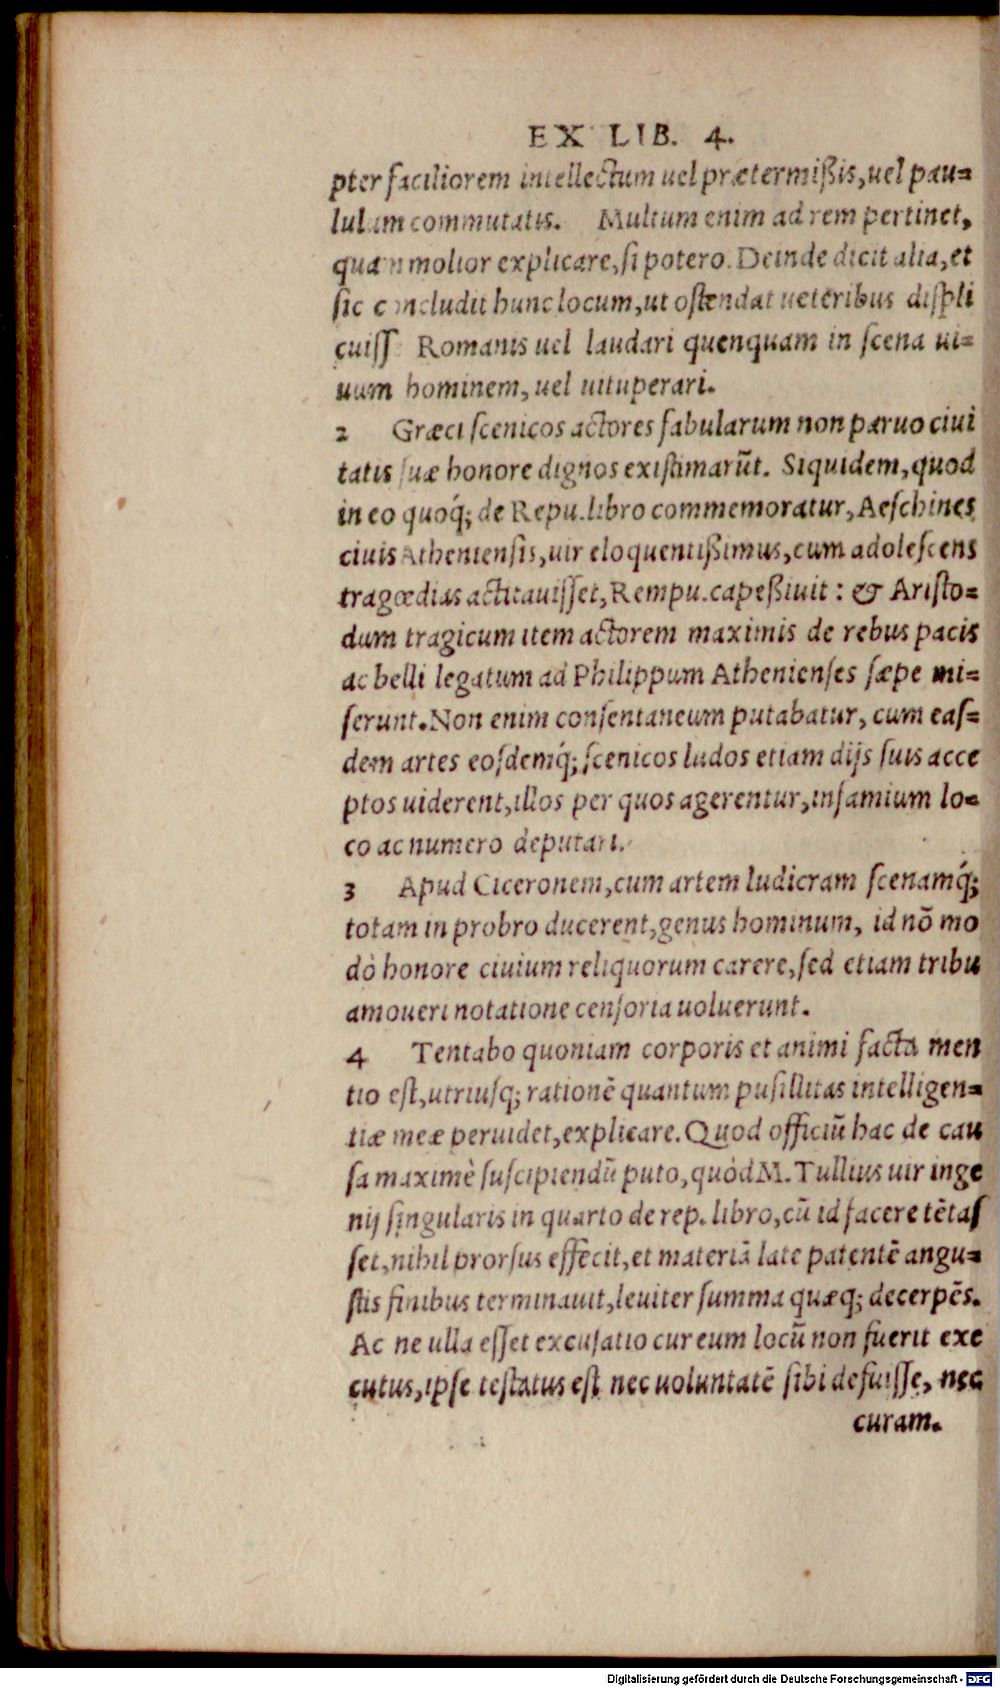 EX LIB. 4.
pter faciliorem intellectum uel prætermißis, uel pau=
lulum commutatis. Multum enim ad rem pertinet,
quam molior explicare, si potero. Deinde dicit alia, et
sic concludit hunc locum, ut ostendat ueteribus displi
cuisse Romanis uel laudari quenquam in scena ui=
uum hominem, uel uituperari.
2 Græci scenicos actores fabularum non paruo ciui
tatis suæ honore dignos existimarũt. Siquidem, quod
in eo quoq́; de Repu. libro commemoratur, Aeschines
ciuis Atheniensis, uir eloquentißimus, cum adolescens
tragœdias actitauisset, Rempu. capeßiuit : & Aristo=
dum tragicum item actorem maximis de rebus pacis
ac belli legatum ad Philippum Athenienses sæpe mi=
serunt. Non enim consentaneum putabatur, cum eas=
dem artes eosdemq́; scenicos ludos etiam dijs suis acce
ptos uiderent, illos per quos agerentur, infamium lo=
co ac numero deputari.
3 Apud Ciceronem, cum artem ludicram scenamq́;
totam in probro ducerent, genus hominum, id nõ mo
dò honore ciuium reliquorum carere, sed etiam tribu
amoueri notatione censoria uoluerunt.
4 Tentabo quoniam corporis et animi facta men
tio est, utriusq; rationẽ quantum pusillitas intelligen=
tiæ meæ peruidet, explicare. Quod officiũ hac de cau
sa maximè suscipiendũ puto, quòd M. Tullius uir inge
nij singularis in quarto de rep. libro, cũ id facere tẽtas
set, nihil prorsus effecit, et materiã late patentẽ angu=
stis finibus terminauit, leuiter summa quæq; decerpẽs.
Ac ne ulla esset excusatio cur eum locũ non fuerit exe
cutus, ipse testatus est nec uoluntatẽ sibi defuisse, nec
curam.
Digitalisierung gefördert durch die Deutsche Forschungsgemeinschaft - DFG